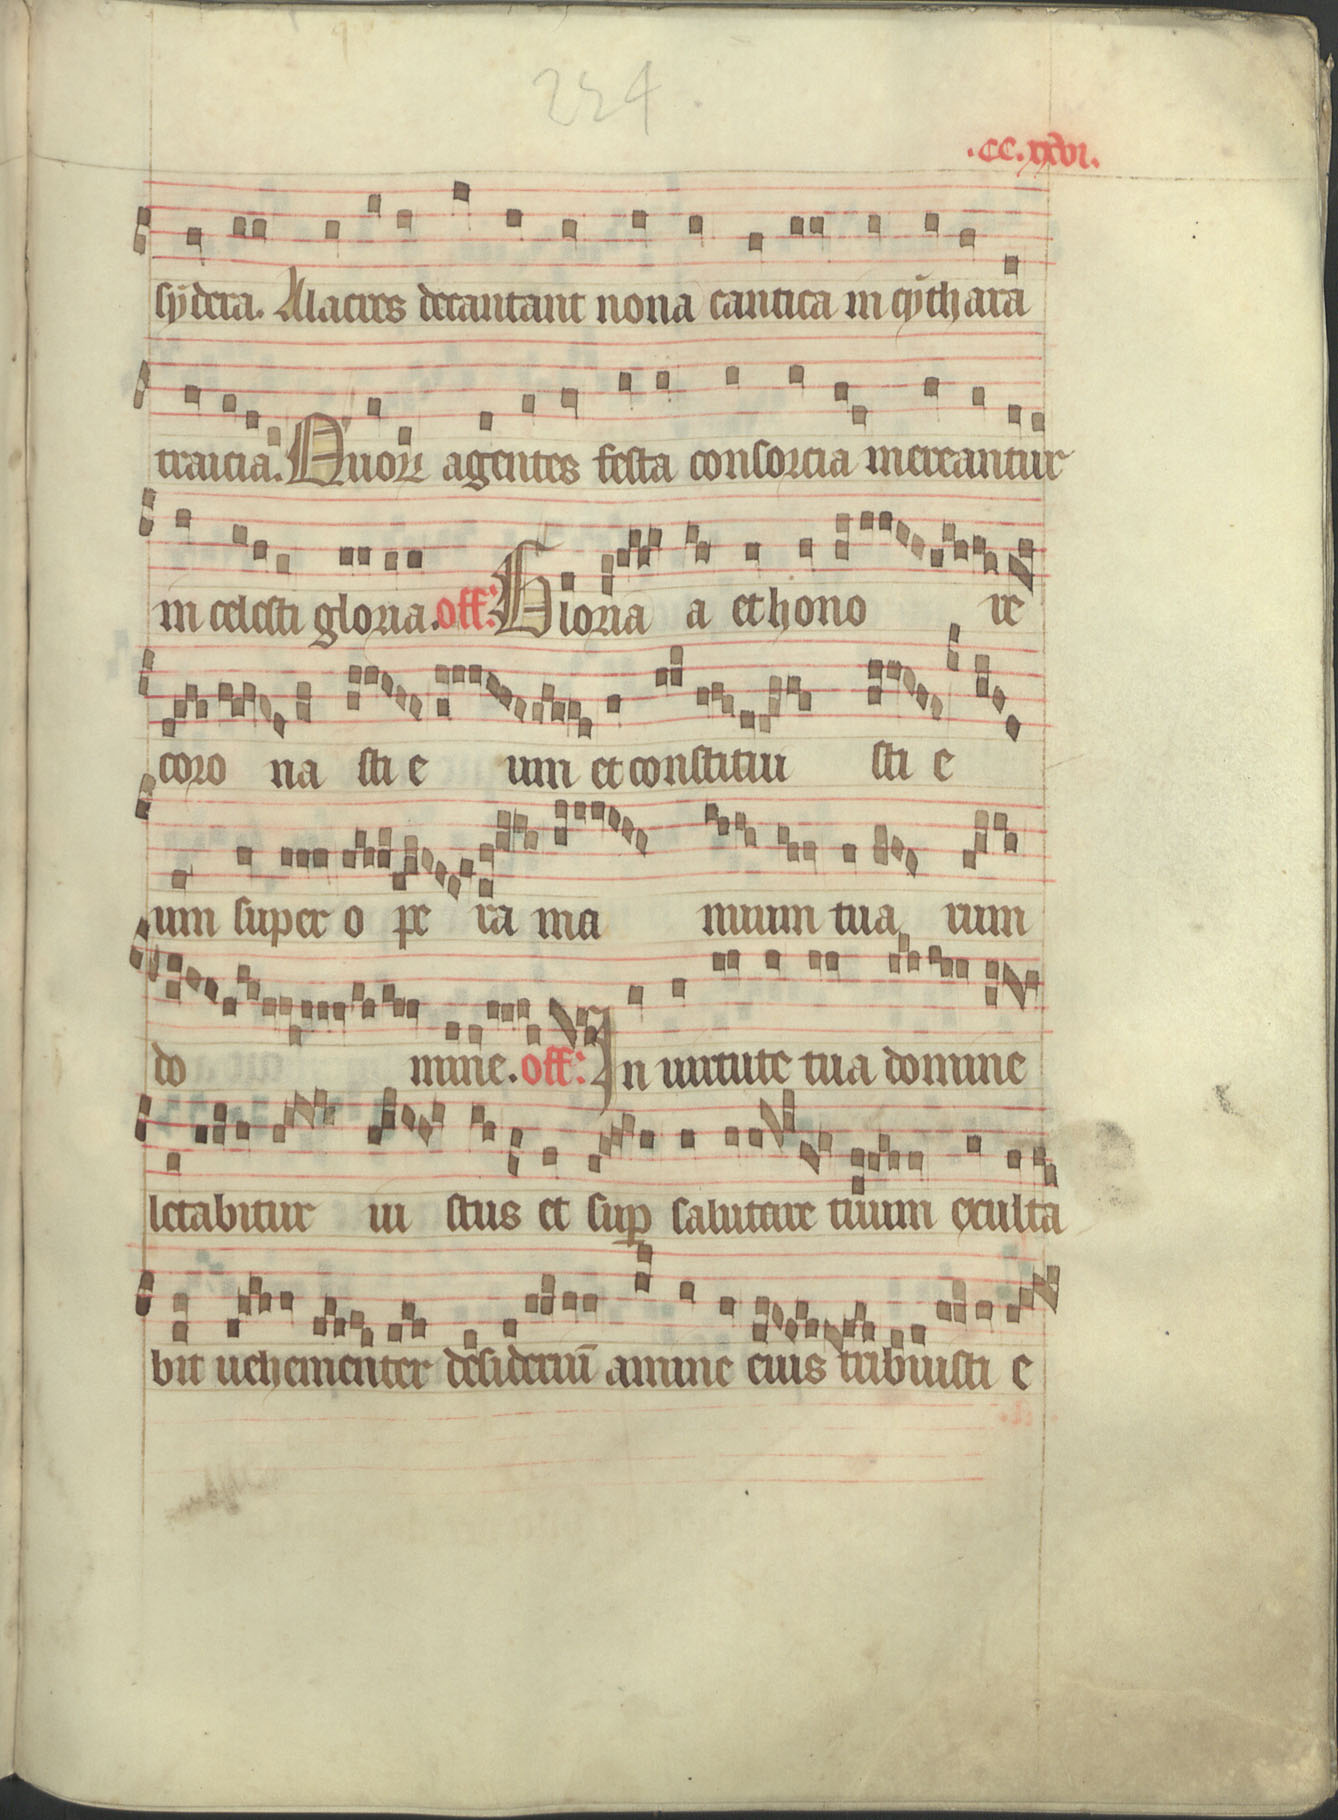 224
.CC.xxvi.
sydera. Alacres decantant nona cantica in cythara
traicia. Quorum agentes festa consorcia mereantur
in celesti gloria. off: Gloria a et hono re
coro na sti e um et constitui sti e
um super o pe ra ma nuum tua rum
do mine. off: In uirtute tua domine
letabitur iu stus et sup salutare tuum exulta
bit uehementer desideriū anime eius tribuisti e